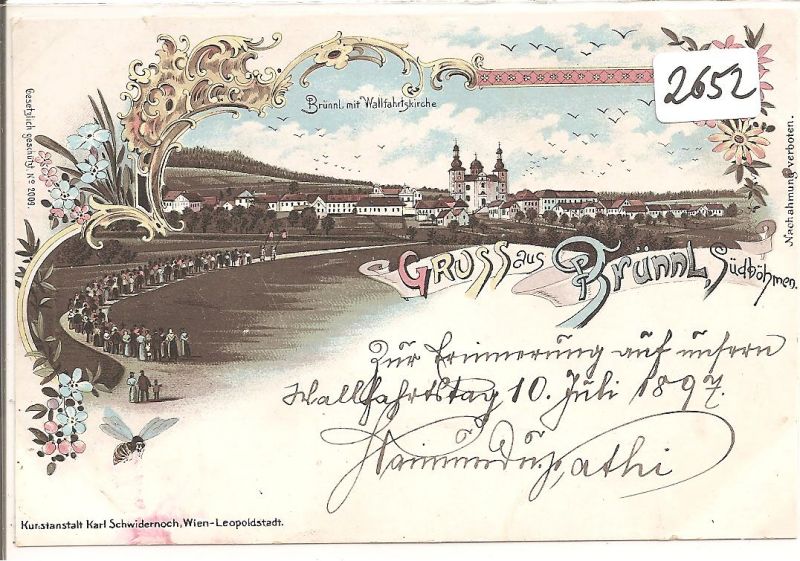 2652
Brünnl mit Wallfahrtskirche
Gesetzlich geschützt No 2009.
Nachahmung verboten.
GRUSS aus BRÜNNL, Südböhmen.
Zur Erinnerung auf unsern
Wallfahrtstag 10. Juli 1897.
Kunstanstalt Karl Schwidernoch, Wien-Leopoldstadt.